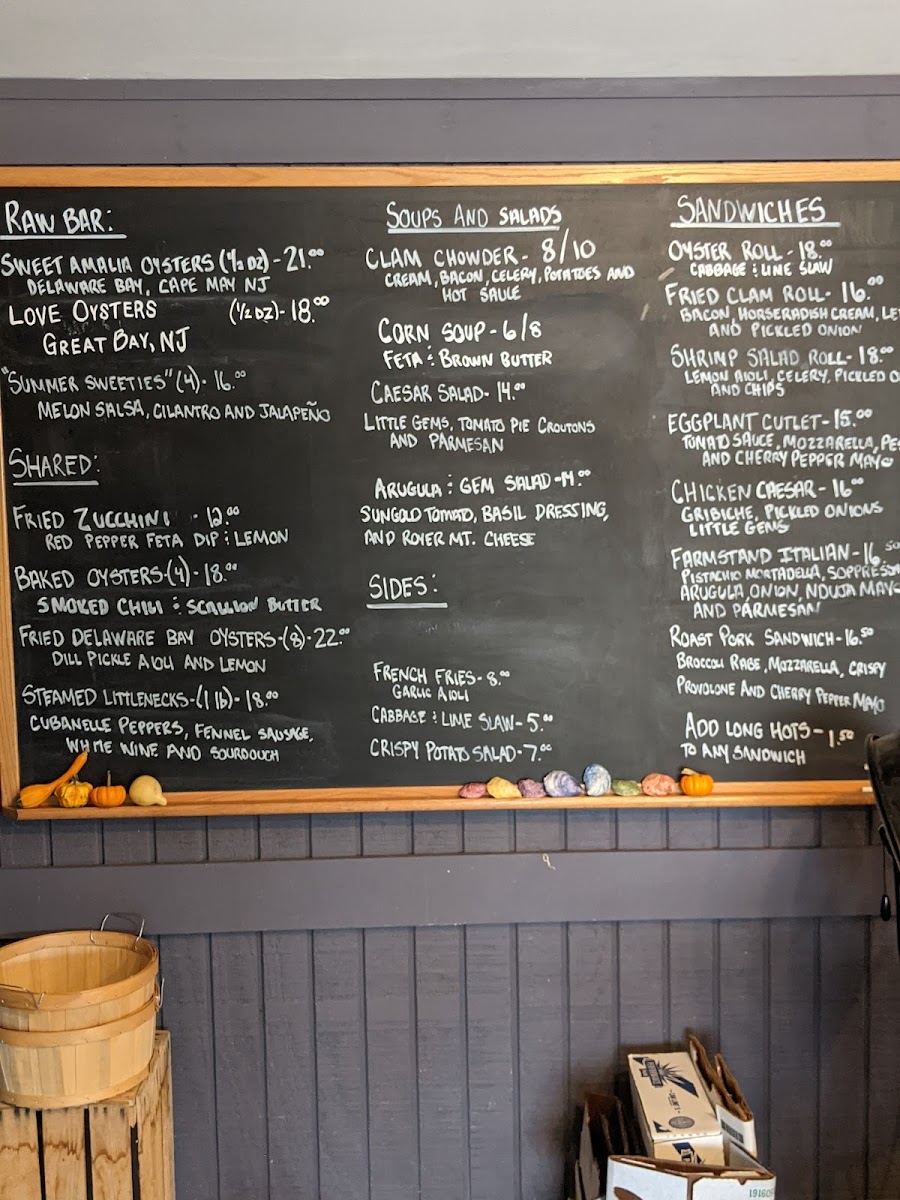 RAW BAR:
SWEET AMALIA OYSTERS (1/2 DZ) - 21.00
DELAWARE BAY, CAPE MAY NJ
LOVE OYSTERS (1/2 DZ) - 18.00
GREAT BAY, NJ
"SUMMER SWEETIES" (4) - 16.00
MELON SALSA, CILANTRO AND JALAPEÑO
SHARED:
FRIED ZUCCHINI - 12.00
RED PEPPER FETA DIP : LEMON
BAKED OYSTERS - (4) - 18.00
SMOKED CHILI : SCALLION BUTTER
FRIED DELAWARE BAY OYSTERS - (8) - 22.00
DILL PICKLE AIOLI AND LEMON
STEAMED LITTLENECKS - (1 lb) - 18.00
CUBANELLE PEPPERS, FENNEL SAUSAGE,
WHITE WINE AND SOURDOUGH
SOUPS AND SALADS
CLAM CHOWDER - 8/10
CREAM, BACON, CELERY, POTATOES AND
HOT SAUCE
CORN SOUP - 6/8
FETA : BROWN BUTTER
CAESAR SALAD - 14.00
LITTLE GEMS, TOMATO PIE CROUTONS
AND PARMESAN
ARUGULA : GEM SALAD - 14.00
SUNGOLD TOMATO, BASIL DRESSING,
AND ROYER MT. CHEESE
SIDES:
FRENCH FRIES - 8.00
GARLIC AIOLI
CABBAGE : LIME SLAW - 5.00
CRISPY POTATO SALAD - 7.00
SANDWICHES
OYSTER ROLL - 18.00
CABBAGE : LIME SLAW
FRIED CLAM ROLL - 16.00
BACON, HORSERADISH CREAM, LE
AND PICKLED ONION
SHRIMP SALAD ROLL - 18.00
LEMON AIOLI, CELERY, PICKLED O
AND CHIPS
EGGPLANT CUTLET - 15.00
TOMATO SAUCE, MOZZARELLA, PES
AND CHERRY PEPPER MAYO
CHICKEN CAESAR - 16.00
GRIBICHE, PICKLED ONIONS
LITTLE GEMS
FARMSTAND ITALIAN - 16.50
PISTACHIO MORTADELLA, SOPPRESSA
ARUGULA, ONION, NDUJA MAYO
AND PARMESAN
ROAST PORK SANDWICH - 16.50
BROCCOLI RABE, MOZZARELLA, CRISPY
PROVOLONE AND CHERRY PEPPER MAYO
ADD LONG HOTS - 1.50
TO ANY SANDWICH